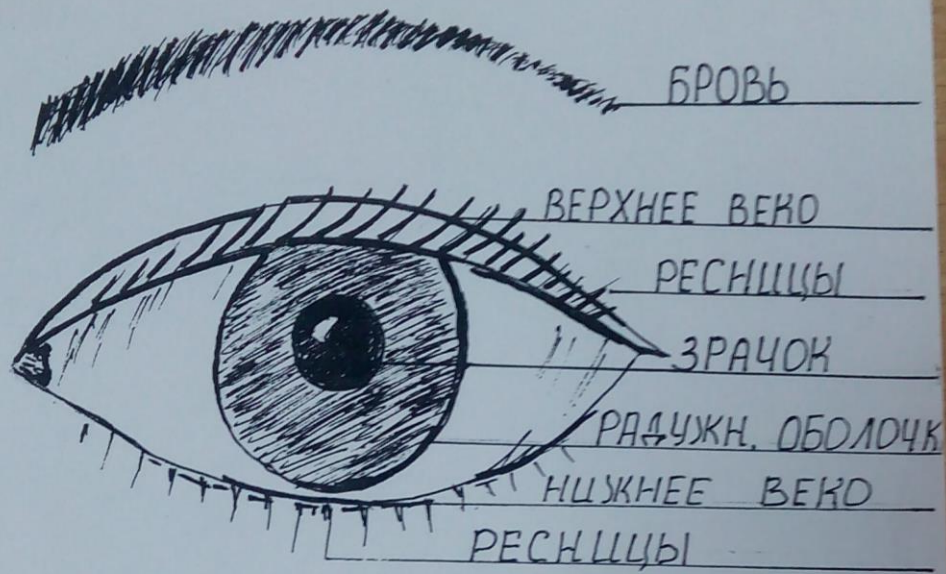 БРОВЬ
ВЕРХНЕЕ ВЕКО
РЕСНИЦЫ
ЗРАЧОК
РАДУЖН. ОБОЛОЧК
НИЖНЕЕ ВЕКО
РЕСНИЦЫ